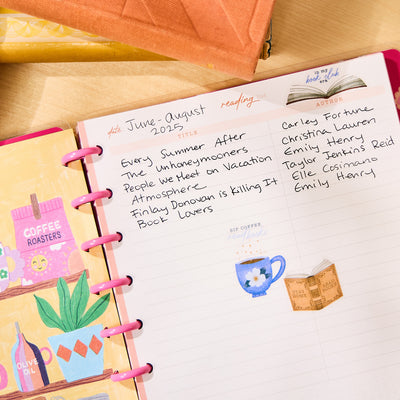 IN MY
book club
ERA
date: June - August
2025
reading
TITLE
AUTHOR
Every Summer After
Carley Fortune
The Unhoneymooners
Christina Lauren
People We Meet on Vacation
Emily Henry
Atmosphere
Taylor Jenkins Reid
Finlay Donovan is Killing It
Elle Cosimano
Book Lovers
Emily Henry
SIP COFFEE
COFFEE
ROASTERS
OLIVE
OIL